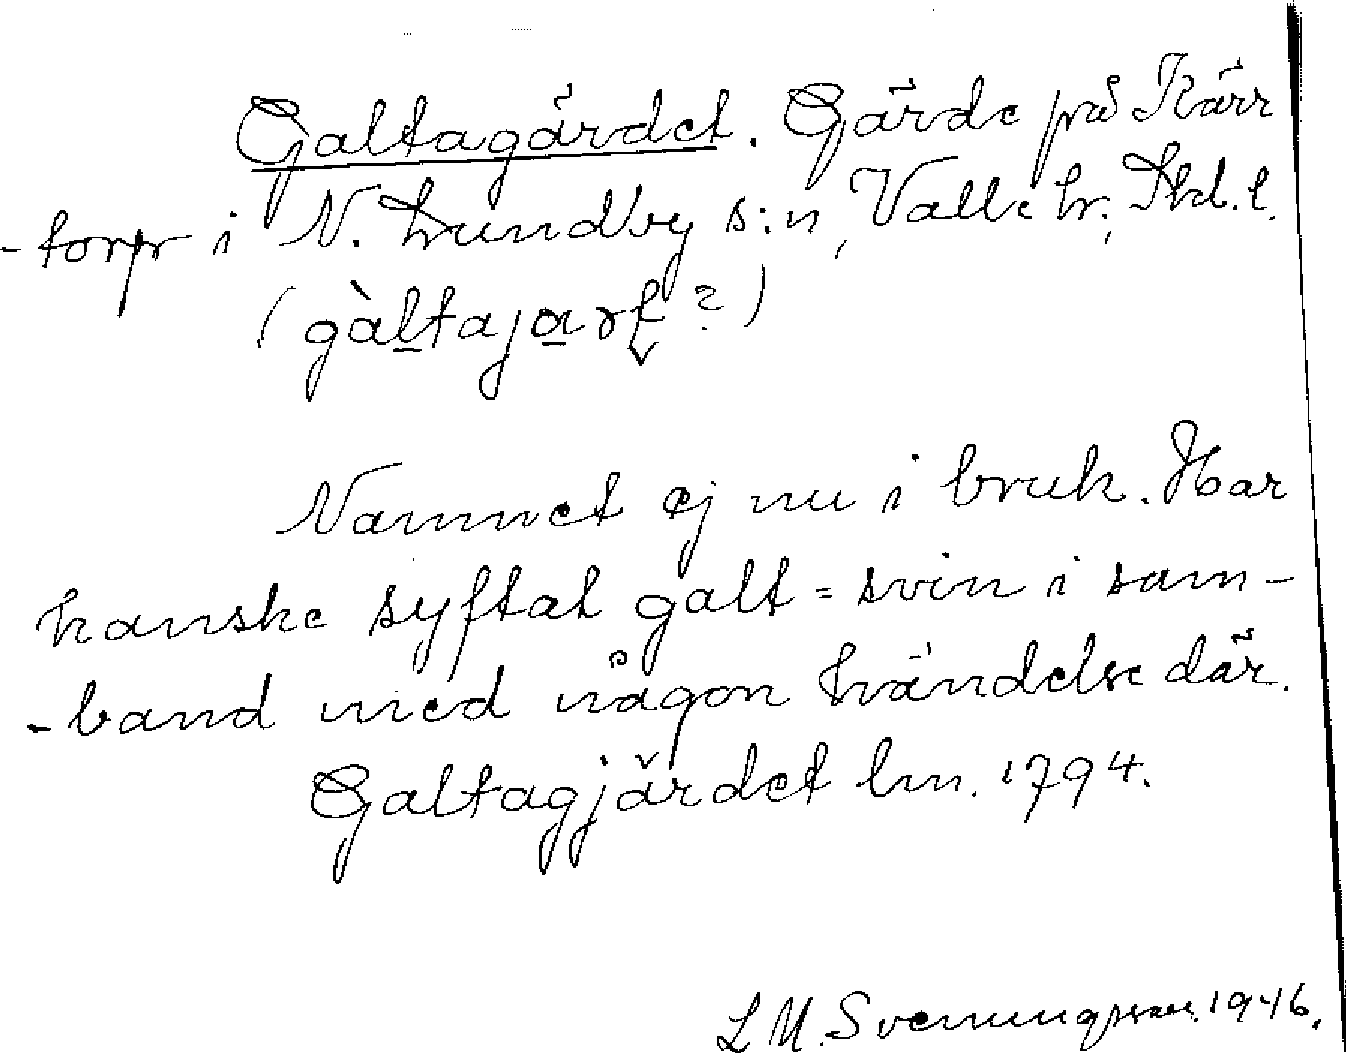 Galtagärdet. Gärde på Kärr
-torp i N. Lundby s:n, Valle hr, Skd. l.
(gàltajart ?)
Namnet ej nu i bruk. Har
kanske syftat galt = svin i sam-
-band med någon händelse där.
Galtagjärdet lm. 1794.
L M. Svenungsson. 1946.